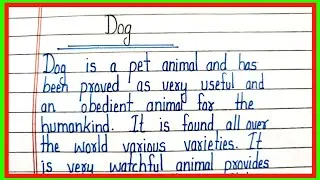 Dog
Dog is a pet animal and has
been proved as very useful and
an obedient animal for the
humankind. It is found all over
the world various varieties. It
is very watchful animal provides